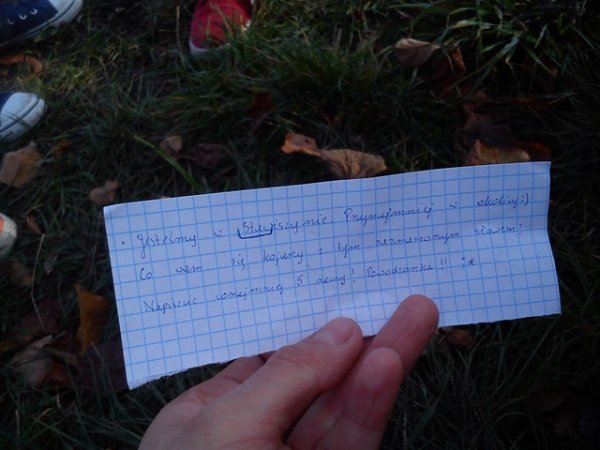 . Jesteśmy w Stawiszynie. Przynajmniej w okolicy:)
Co wam się kojarzy z tym zaznaczonym słowem?
Napiszcie conajmniej 5 rzeczy! Powodzenia!! ;*